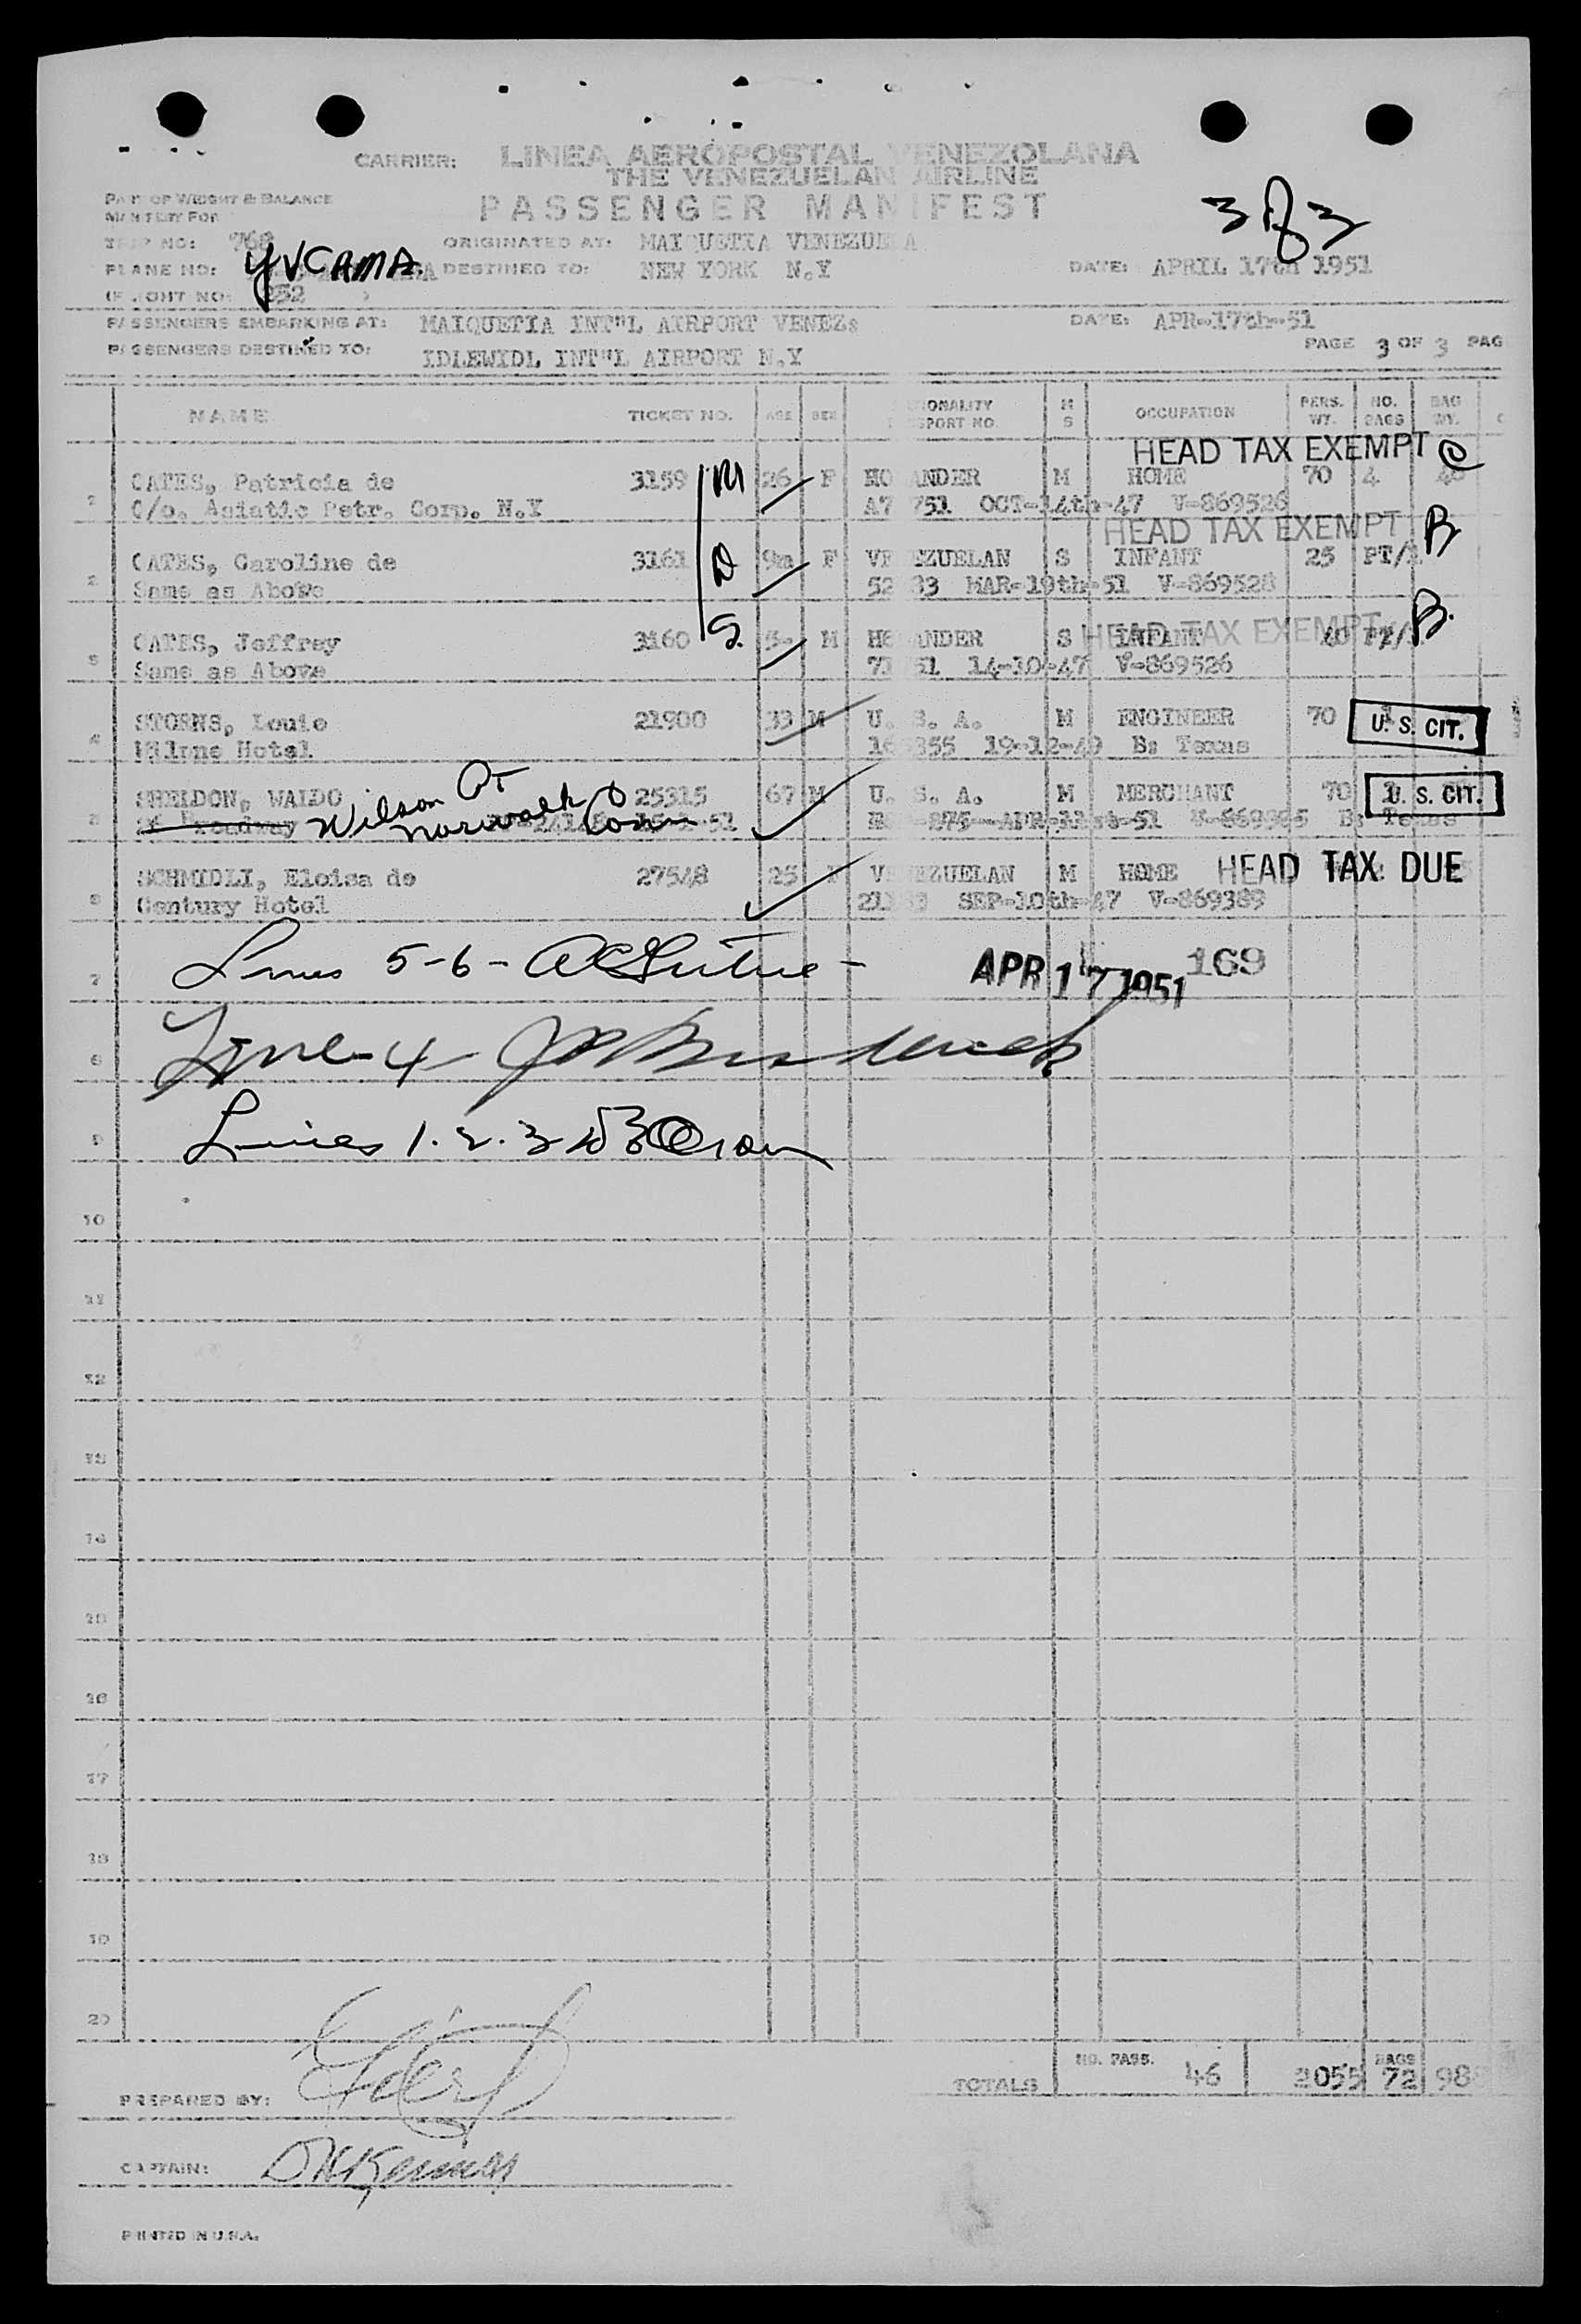 CARRIER: LINEA AEROPOSTAL VENEZOLANA
THE VENEZUELAN AIRLINE
PASSENGER MANIFEST
PART OF WEIGHT & BALANCE
MANIFEST FOR
3 of 3
TRIP NO: 768 ORIGINATED AT: MAIQUETIA VENEZUELA
PLANE NO: YVCAMA DESTINED TO: NEW YORK N.Y DATE: APRIL 17th 1951
FLIGHT NO: 252
PASSENGERS EMBARKING AT: MAIQUETIA INT"L AIRPORT VENEZs DATE: APR-17th-51
PASSENGERS DESTINED TO: IDLEWIDL INT"L AIRPORT N.Y PAGE 3 OF 3 PAG
NAME TICKET NO. AGE SEX NATIONALITY PASSPORT NO. M S OCCUPATION PERS. WT. NO. BAGS BAG WT.
HEAD TAX EXEMPT
1 CATES, Patricia de 3159 M 26 F HO ANDER M HOME 70 4
C/o. Asiatic Petr. Corp. N.Y A7 751 OCT-14th-47 V-869526
HEAD TAX EXEMPT B
2 CATES, Caroline de 3161 D 9m F VENEZUELAN S INFANT 25 PT/1
Same as Above 52 83 MAR-19th-51 V-869528
HEAD TAX EXEMPT B.
3 CATES, Jeffrey 3160 S. M HO ANDER S INFANT 40 PT/
Same as Above 71 51 14-10-47 V-869526
4 STORNS, Louie 21900 33 M U. S. A. M ENGINEER 70 1 U. S. CIT.
Hotel 16 355 19-12-49 B: Texas
5 SHELDON, WALDO Wilson Pt 25315 67 M U. S. A. M MERCHANT 70 U. S. CIT.
Broadway Norwalk Conn
6 SCHMIDLI, Eloisa de 27548 25 F VENEZUELAN M HOME HEAD TAX DUE
Century Hotel SEP-10th-47 V-869389
7 Lines 5-6- APR 17 1951 169
8 Line-4
9 Lines 1.2.3
10
11
12
13
14
15
16
17
18
19
20
TOTALS NO. PASS. 46 2055 BAGS 72 988
PREPARED BY:
CAPTAIN:
PRINTED IN U.S.A.